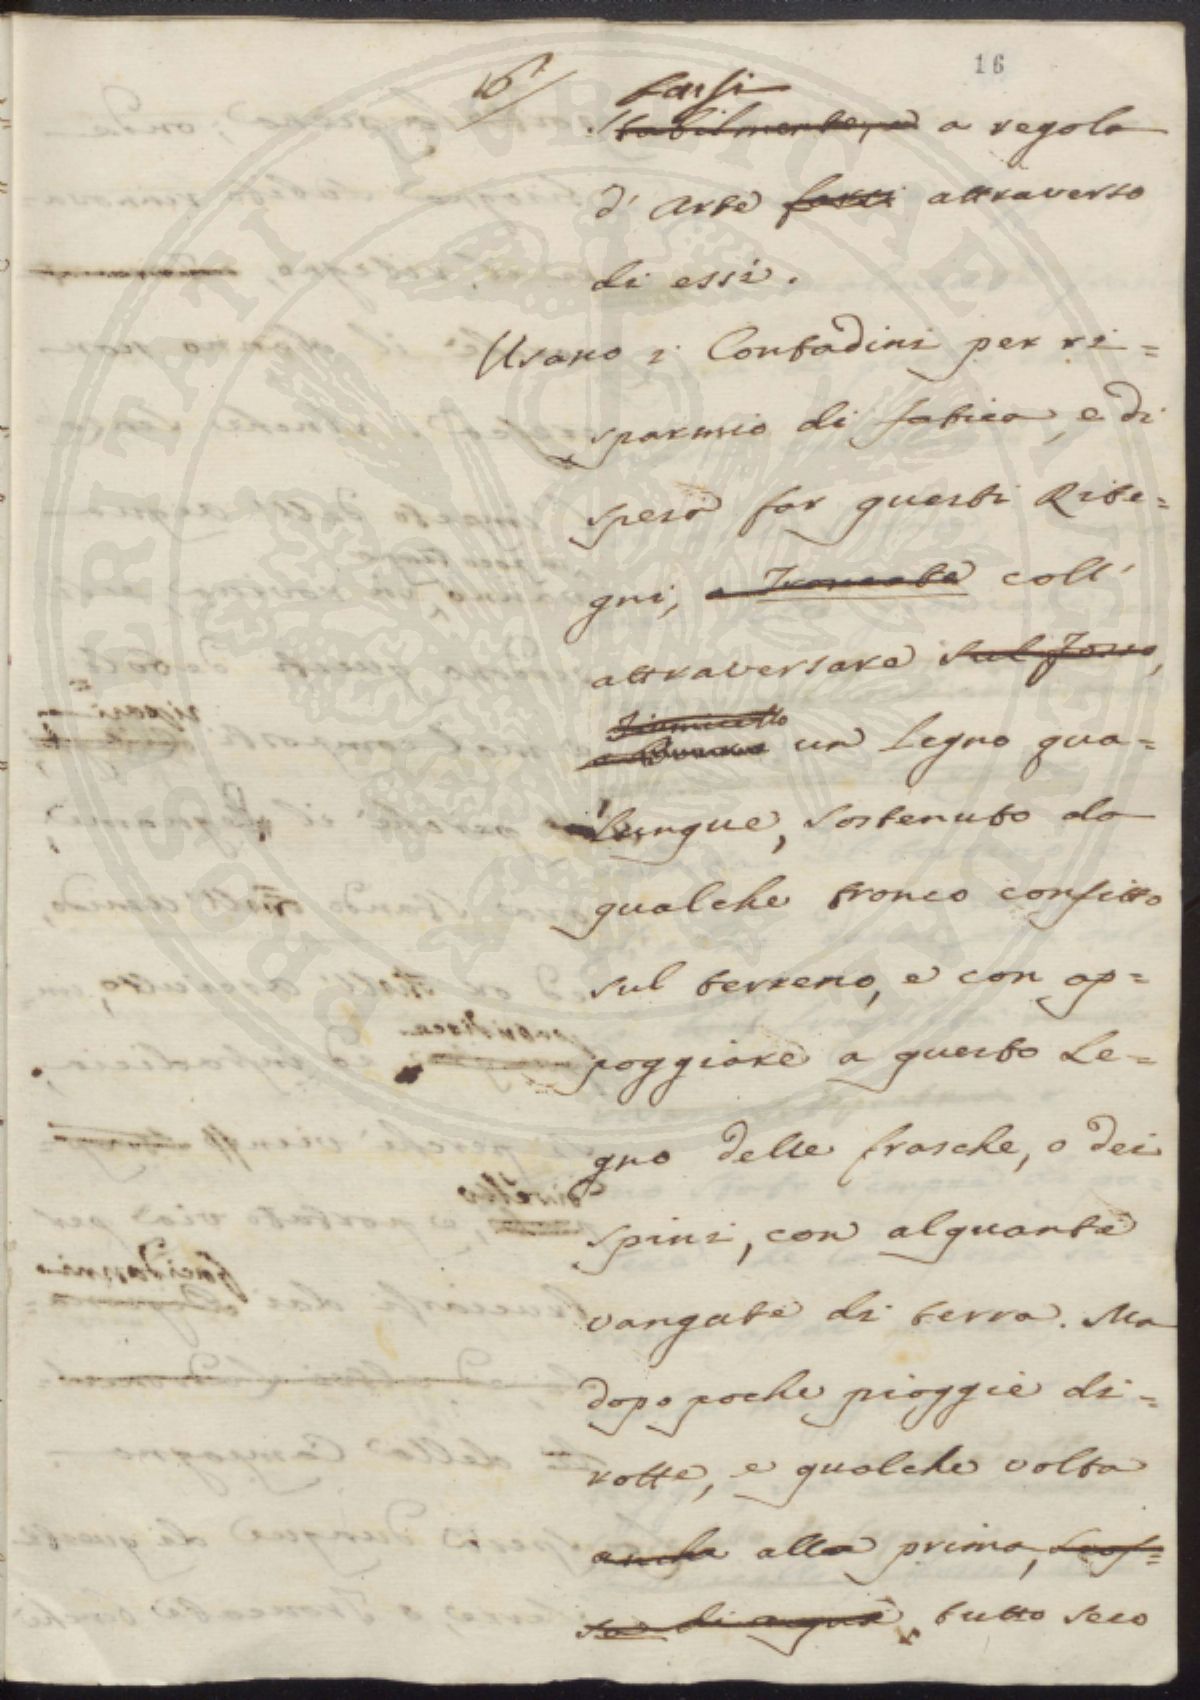 16
16.
farsi
stabilmente, e a regola
d'Arte fatti attraverso
di essi.
Usano i Contadini per ri=
sparmio di fatica, e di
spesa far questi Rite=
gni, o Troncate coll'
attraversare sul Fosso,
Fiumicello
un Legno qua=
lunque, sostenuto da
qualche tronco confitto
sul terreno, e con ap=
poggiare a questo Le=
gno delle frasche, o dei
spini, con alquante
vangate di terra. Ma
dopo poche pioggie di=
rotte, e qualche volta
anche alla prima,
di acqua, tutto seco